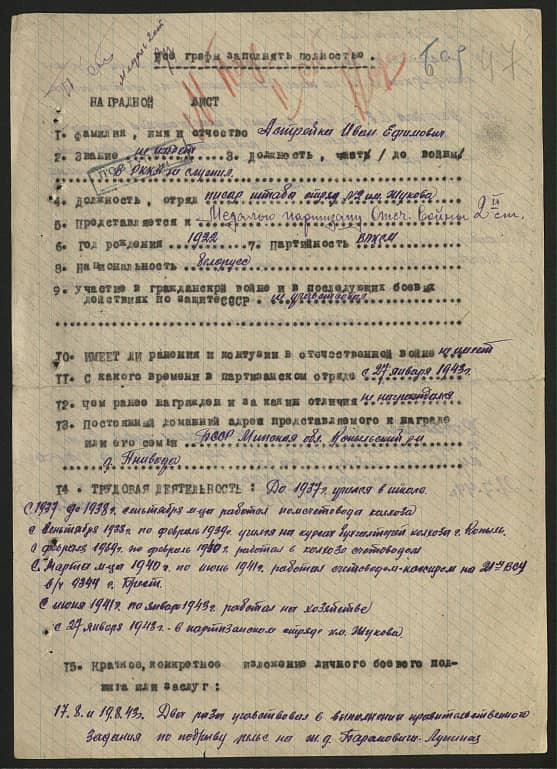 Все графы заполнять полностью.
47
НАГРАДНОЙ ЛИСТ
1. Фамилия, имя и отчество Астрейка Иван Ефимович
2. Звание не имеет 3. Должность, часть /до войны/
в РККА не служил
4. Должность, отряд писар штаба отряд №2 им. Жукова
5. Представляется к Медалью партизану Отеч. войны 2 II ст.
6. Год рождения 1922 7. Партийность ВЛКСМ
8. Национальность белорусс
9. Участие в гражданской войне и в последующих боевых
действиях по защите СССР. не участвовал
10. ИМЕЕТ ЛИ ранения и контузии в отечественной войне не имеет
11. С какого времени в партизанском отряде с 27 января 1943г.
12. Чем ранее награжден и за какие отличия не награждался
13. Постоянный домашний адрес представляемого к награде
или его семьи БССР Минская обл. Копыльский р-н
д.
14. ТРУДОВАЯ ДЕЯТЕЛЬНОСТЬ: До 1937г. учился в школе.
С 1937 до 1938г. сентября м-ца работал помсчетовода колхоза
с Сентября 1938г. по февраль 1939г. учился на курсах бухгалтерей колхоза г. Копыль.
с февраля 1939г. по февраль 1940г. работал в колхозе счетоводом
С Марта м-ца 1940г. по июнь 1941г. работал счетоводом-кассиром на ВСУ
в/ч 9344 г. Брест.
С июня 1941г. по январь 1943г. работал на хозяйстве
с 27 января 1943г. - в партизанском отряде им. Жукова
15. Краткое, конкретное изложение личного боевого под-
вига или заслуг:
17.8. и 19.8.43г. Два раза участвовал в выполнении правительственного
задания по подрыву рельс на ж.д. Барановичи-Лунинец